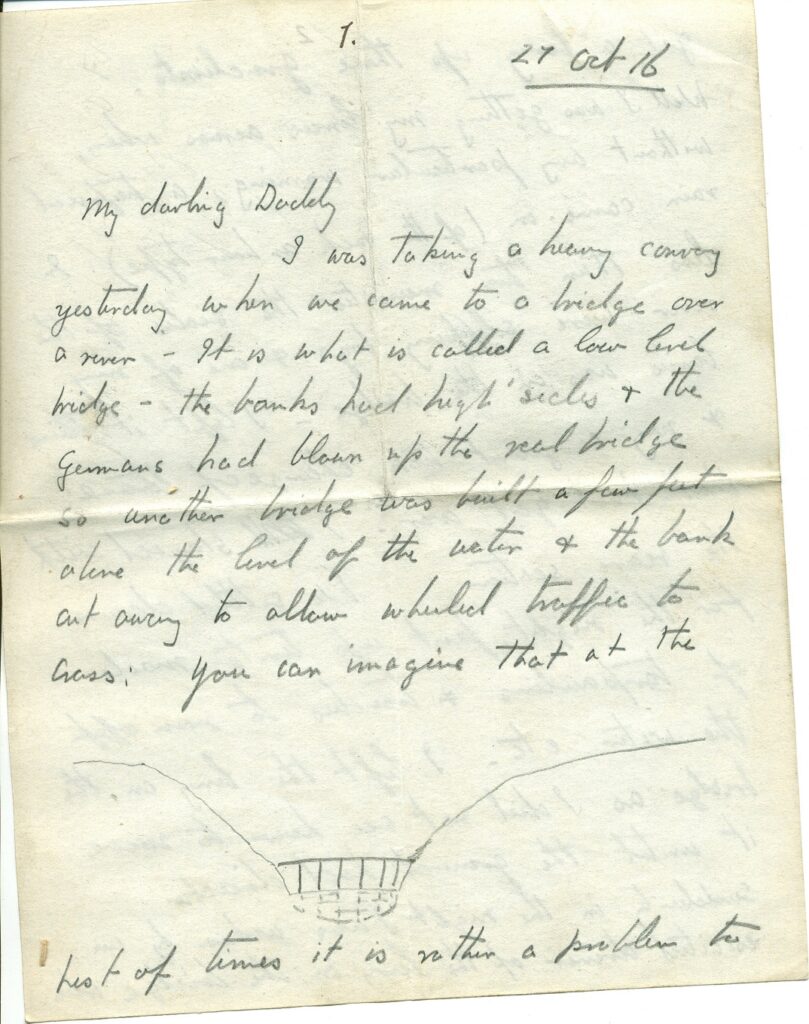 1.
27 Oct 16
My darling Daddy
I was taking a heavy convoy
yesterday when we came to a bridge over
a river – It is what is called a low level
bridge – the banks had high sides & the
Germans had blown up the real bridge
so another bridge was built a few feet
above the level of the water & the bank
cut away to allow wheeled traffic to
cross: You can imagine that at the
best of times it is rather a problem to